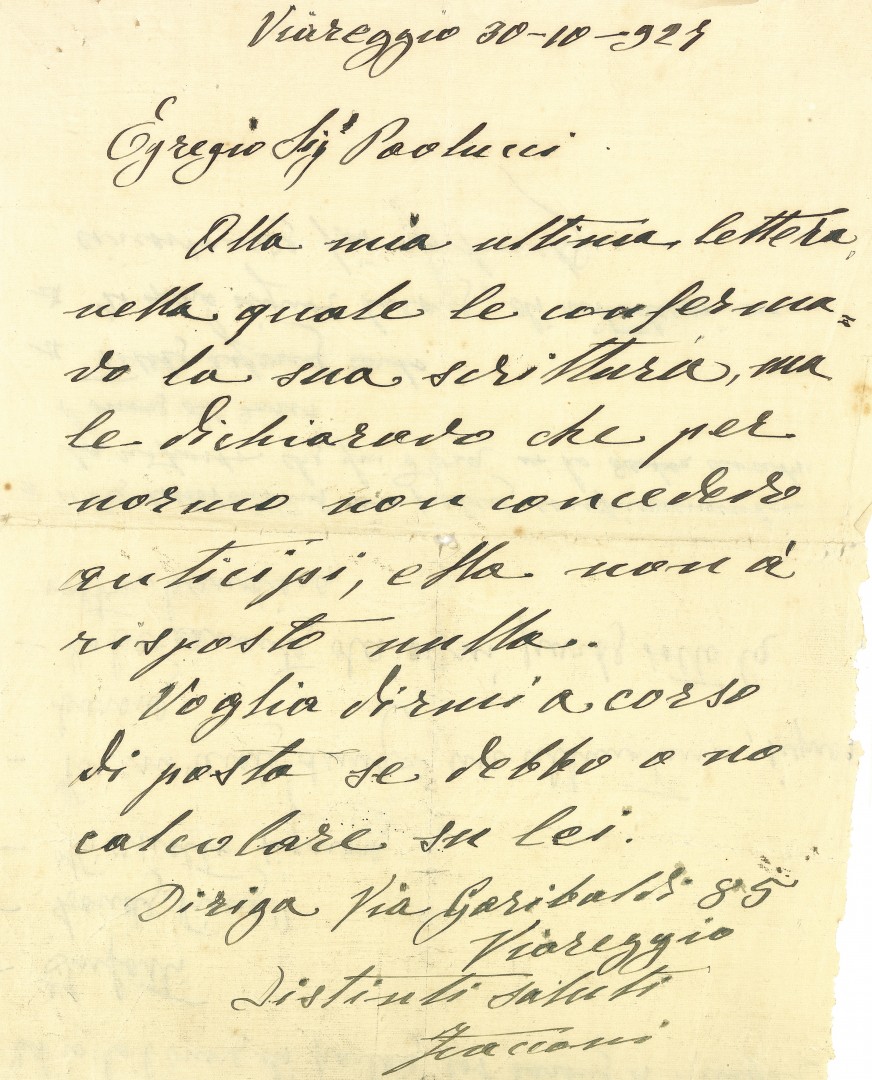 Viareggio 30-10-924
Egregio Sigr Paolucci
Alla mia ultima lettera,
nella quale le conferma=
vo la sua scrittura, ma
le dichiaravo che per
norma non concedevo
anticipi, ella non à
risposto nulla.
Voglia dirmi a corso
di posta se debbo o no
calcolare su lei.
Diriga Via Garibaldi 85
Viareggio
Distinti saluti